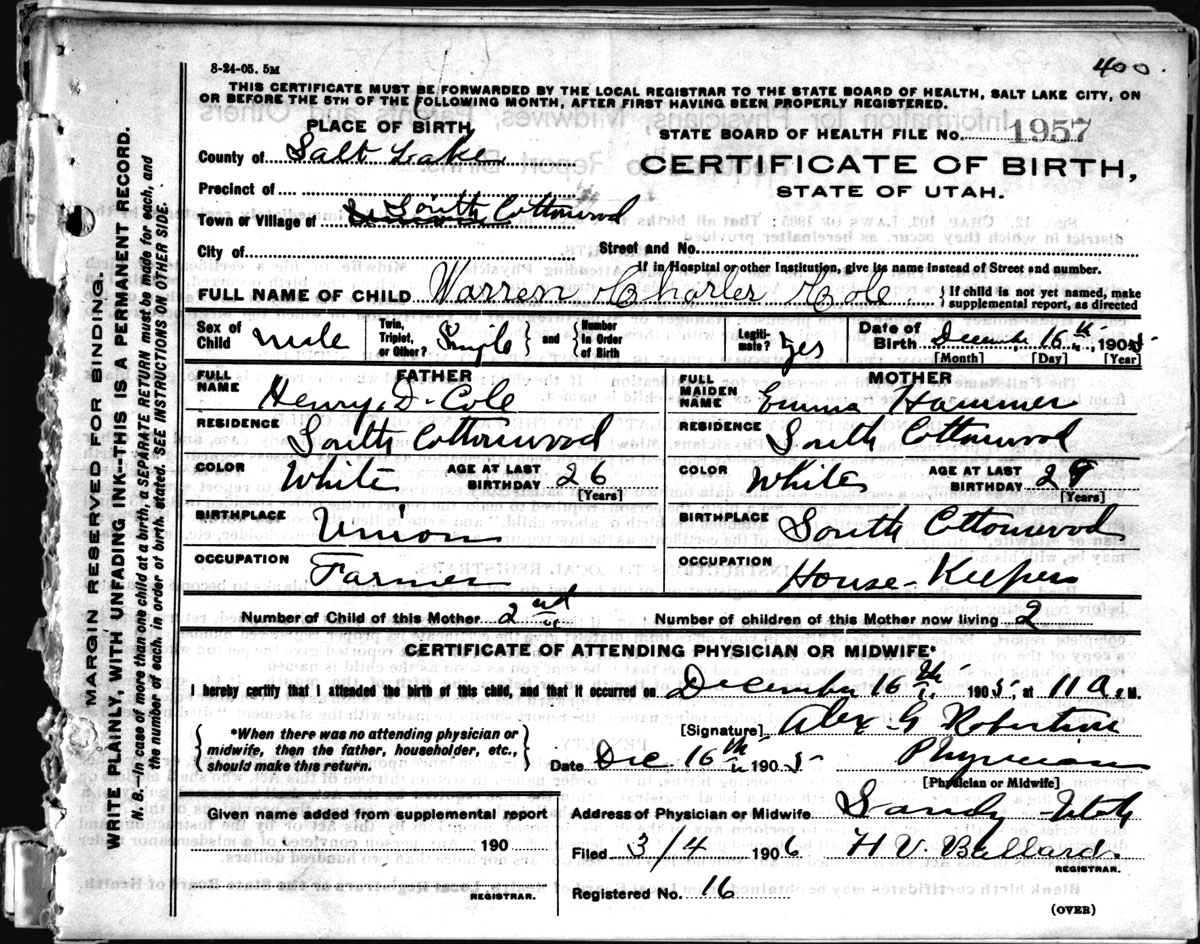 8-24-05. 5M
400
THIS CERTIFICATE MUST BE FORWARDED BY THE LOCAL REGISTRAR TO THE STATE BOARD OF HEALTH, SALT LAKE CITY, ON
OR BEFORE THE 5TH OF THE FOLLOWING MONTH, AFTER FIRST HAVING BEEN PROPERLY REGISTERED.
PLACE OF BIRTH
STATE BOARD OF HEALTH FILE NO. 1957
County of Salt Lake
CERTIFICATE OF BIRTH,
STATE OF UTAH.
Precinct of
Town or Village of South Cottonwood
City of
Street and No.
If in Hospital or other Institution, give its name instead of Street and number.
FULL NAME OF CHILD Warren Charles Cole { If child is not yet named, make
supplemental report, as directed
Sex of Child male
Twin, Triplet, or Other? Single } and { Number in Order of Birth
Legitimate? yes
Date of Birth December 16th, 1905
[Month] [Day] [Year]
FATHER
FULL NAME Henry D. Cole
MOTHER
FULL MAIDEN NAME Emma Hammer
RESIDENCE South Cottonwood
RESIDENCE South Cottonwood
COLOR White AGE AT LAST BIRTHDAY 26
[Years]
COLOR White AGE AT LAST BIRTHDAY
[Years]
BIRTHPLACE Union
BIRTHPLACE South Cottonwood
OCCUPATION Farmer
OCCUPATION House-Keeper
Number of Child of this Mother 2nd
Number of children of this Mother now living 2
CERTIFICATE OF ATTENDING PHYSICIAN OR MIDWIFE*
I hereby certify that I attended the birth of this child, and that it occurred on December 16th 1905 at 11 a. M.
{ *When there was no attending physician or
midwife, then the father, householder, etc.,
should make this return. }
[Signature] Alex G Robertson
Date Dec 16th 1905 Physician
[Physician or Midwife]
Given name added from supplemental report
190
REGISTRAR.
Address of Physician or Midwife Sandy Utah
Filed 3/4 1906 H V Ballard.
REGISTRAR.
Registered No. 16
(OVER)
MARGIN RESERVED FOR BINDING.
WRITE PLAINLY, WITH UNFADING INK--THIS IS A PERMANENT RECORD.
N.B.--In case of more than one child at a birth, a SEPARATE RETURN must be made for each, and
the number of each, in order of birth, stated. SEE INSTRUCTIONS ON OTHER SIDE.